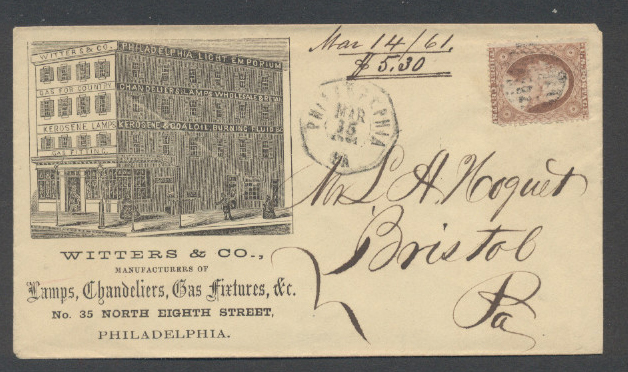 WITTERS & CO.
PHILADELPHIA LIGHT EMPORIUM
GAS FOR COUNTRY
CHANDELIER & LAMPS WHOLESALE &
KEROSENE LAMPS
KEROSENE & COAL OIL BURNING FLUID &c
GAS FITTING
WITTERS & CO.,
MANUFACTURERS OF
Lamps, Chandeliers, Gas Fixtures, &c.
No. 35 NORTH EIGHTH STREET,
PHILADELPHIA.
Mar 14/61.
$ 5.30
PHILADELPHIA
MAR
15
PA
Mr L. A. Hoguet
Bristol
Pa